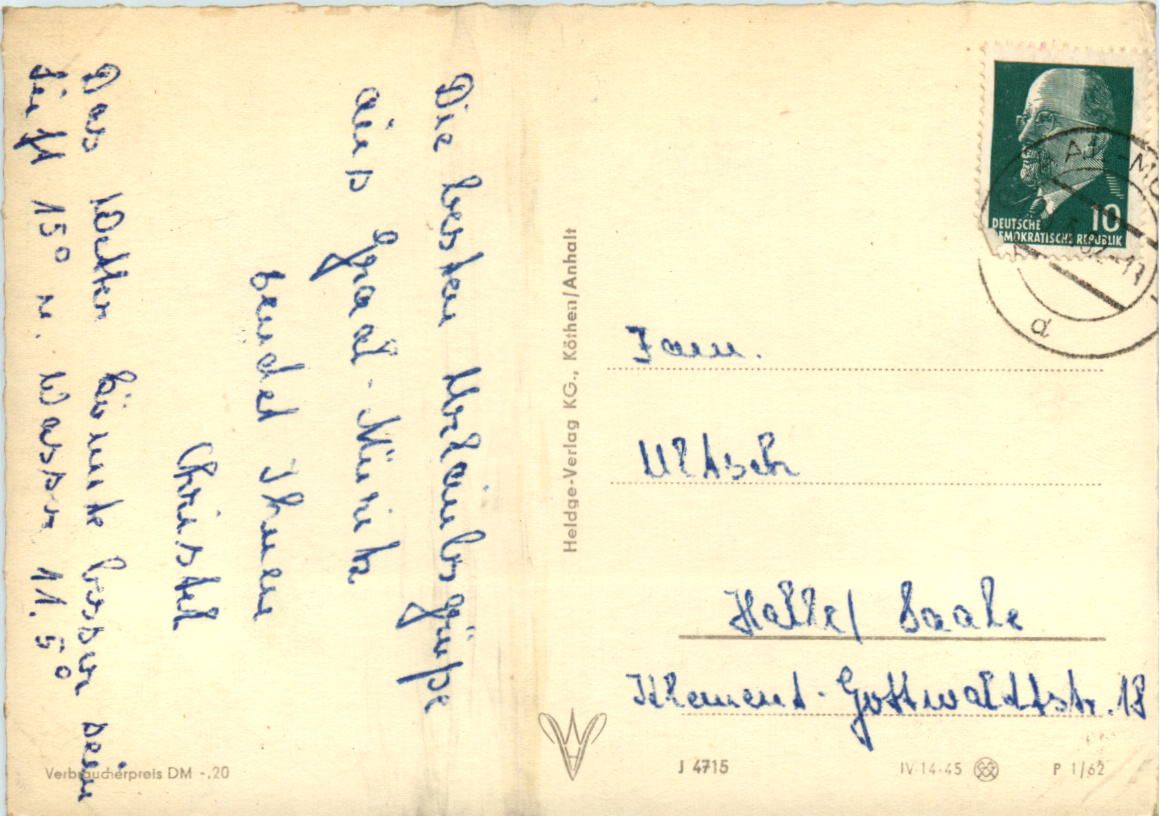 Die besten Urlaubsgrüße
aus Graal-Müritz
sendet Ihnen
Christel
Das Wetter könnte besser sein
Luft 15° u. Wasser 11,5°
Heldge-Verlag KG., Köthen/Anhalt
DEUTSCHE
DEMOKRATISCHE REPUBLIK
10
Fam.
Ultsch
Halle/ Saale
Klement-Gottwaldstr. 18
Verbraucherpreis DM -.20
J 4715
IV-14-45
P 1/62